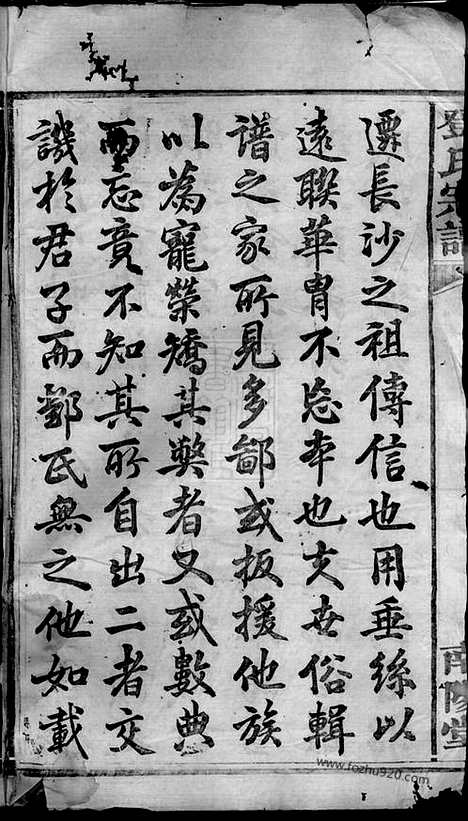 遷長沙之祖傳信也用垂絲以
遠聯華胄不忘本也夫世俗輯
譜之家所見多鄙或扳援他族
以為寵榮矯其弊者又或數典
而忘竟不知其所自出二者交
譏於君子而鄧氏無之他如載
鄧氏宗譜
南陽堂
www.fozhu920.com